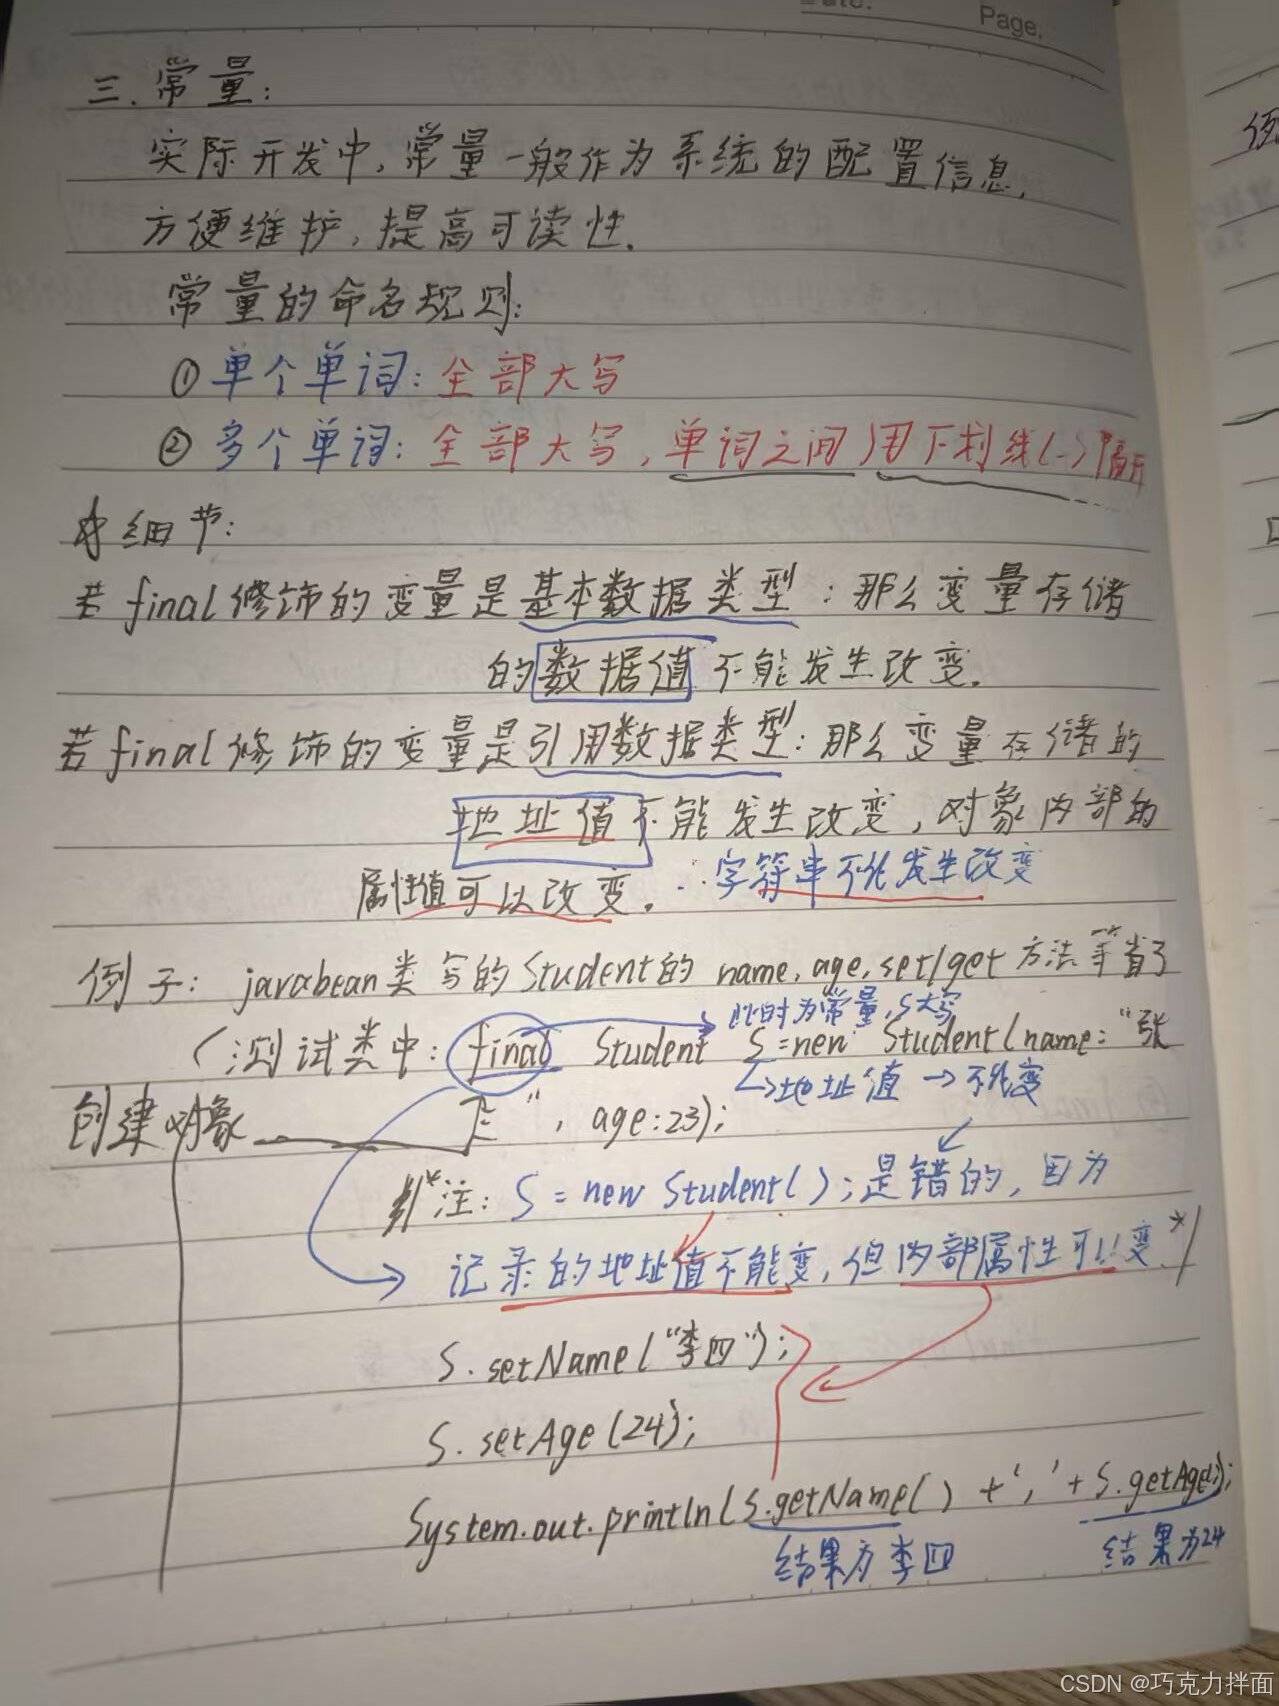 Page.
三.常量:
实际开发中,常量一般作为系统的配置信息,
方便维护,提高可读性.
常量的命名规则:
①单个单词:全部大写
②多个单词:全部大写,单词之间用下划线(_)隔开
细节:
若final修饰的变量是基本数据类型:那么变量存储
的数据值不能发生改变.
若final修饰的变量是引用数据类型:那么变量存储的
地址值不能发生改变,对象内部的
属性值可以改变. ∴字符串不能发生改变
例子: javabean类写的Student的 name, age, set/get方法等省了
此时为常量,S大写
(测试类中: final Student S=new Student(name:"张
↳地址值→不能变
创建对象 三", age:23);
/*注: S = new Student();是错的,因为
记录的地址值不能变,但内部属性可以变.*/
S.setName("李四");
S.setAge(24);
System.out.println(S.getName() +','+S.getAge());
结果为李四 结果为24
例
CSDN @巧克力拌面